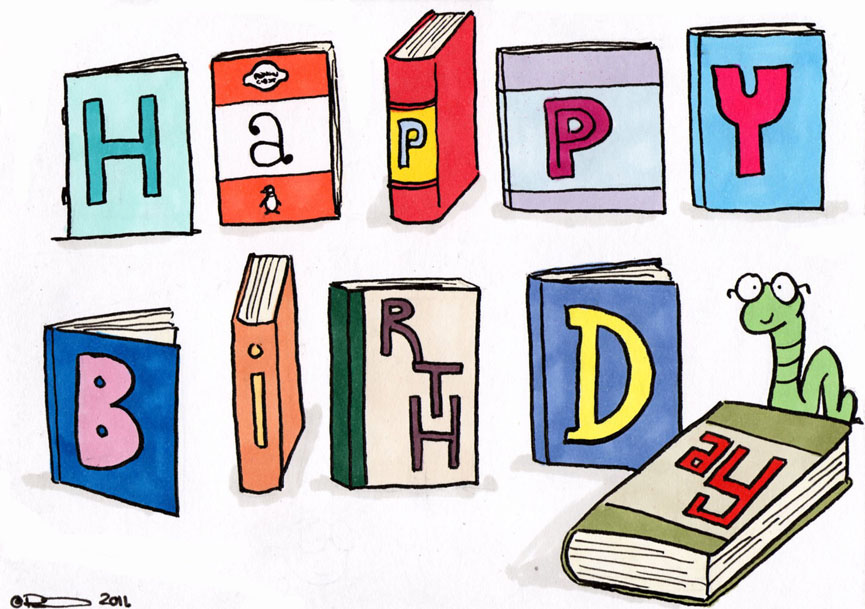 HaPPY
BiRTHDay
© 2011